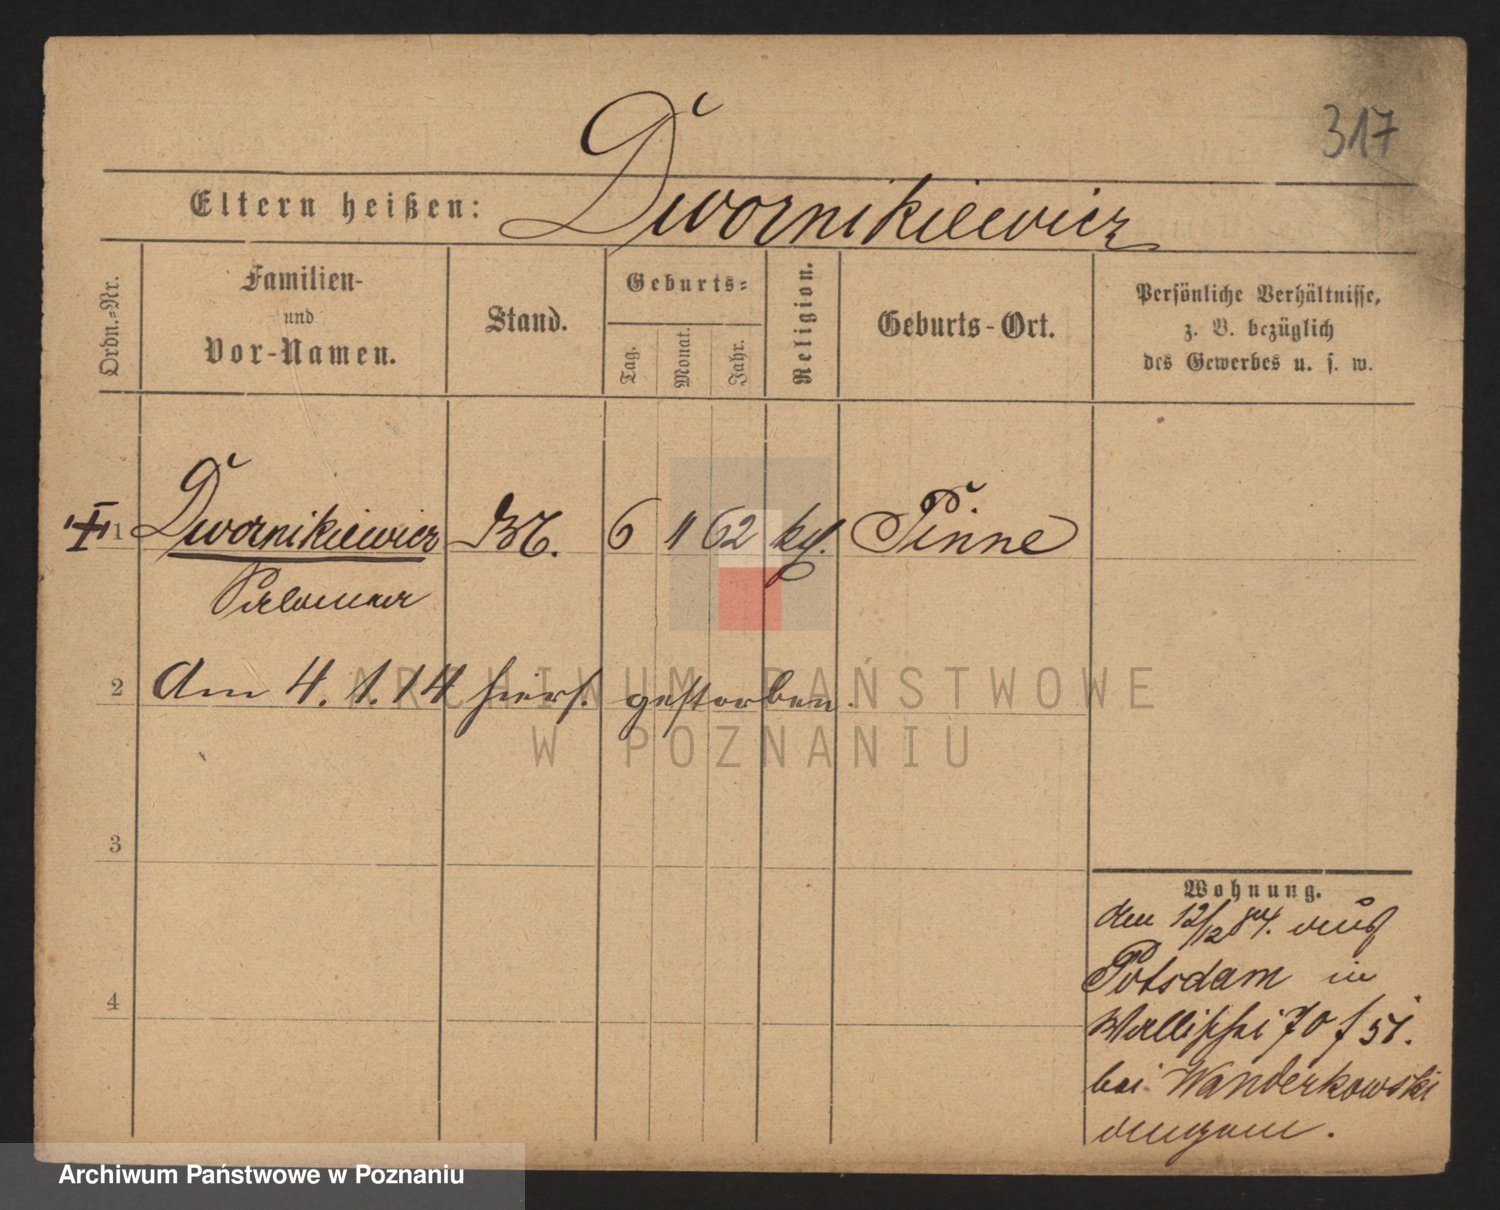 317
Eltern heißen: Dwornikiewicz
Ordn.-Nr.
Familien-
und
Vor-Namen.
Stand.
Geburts-
Tag.
Monat.
Jahr.
Religion.
Geburts-Ort.
Persönliche Verhältnisse,
z. B. bezüglich
des Gewerbes u. s. w.
1 Dwornikiewicz 6 11 62 kath. Pinne
Salomea
2 Am 4.1.14 hiers. gestorben.
3
4
Wohnung.
den 12/12 84. aus
Potsdam in
Wallischei 70
bei Wanderkowski
anzem.
ARCHIWUM PAŃSTWOWE
W POZNANIU
Archiwum Państwowe w Poznaniu